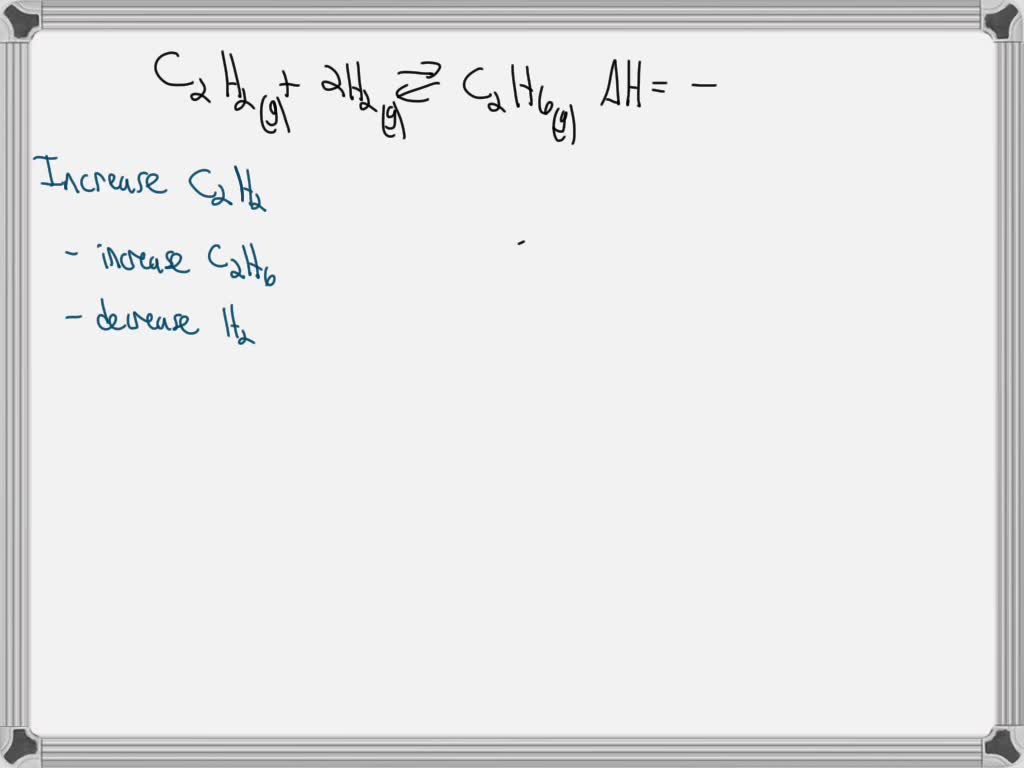 C₂H₂(g) + 2H₂(g) ⇌ C₂H₆(g) ΔH = −
Increase C₂H₂
- increase C₂H₆
- decrease H₂